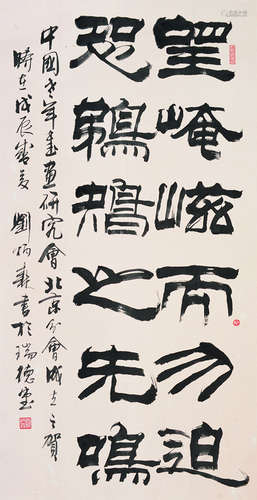 望崦嵫而勿迫
恐鹈鴂之先鳴
中國老年書画研究會北京分會成立之賀
時在戊辰盛夏劉炳森書於瑞德堂